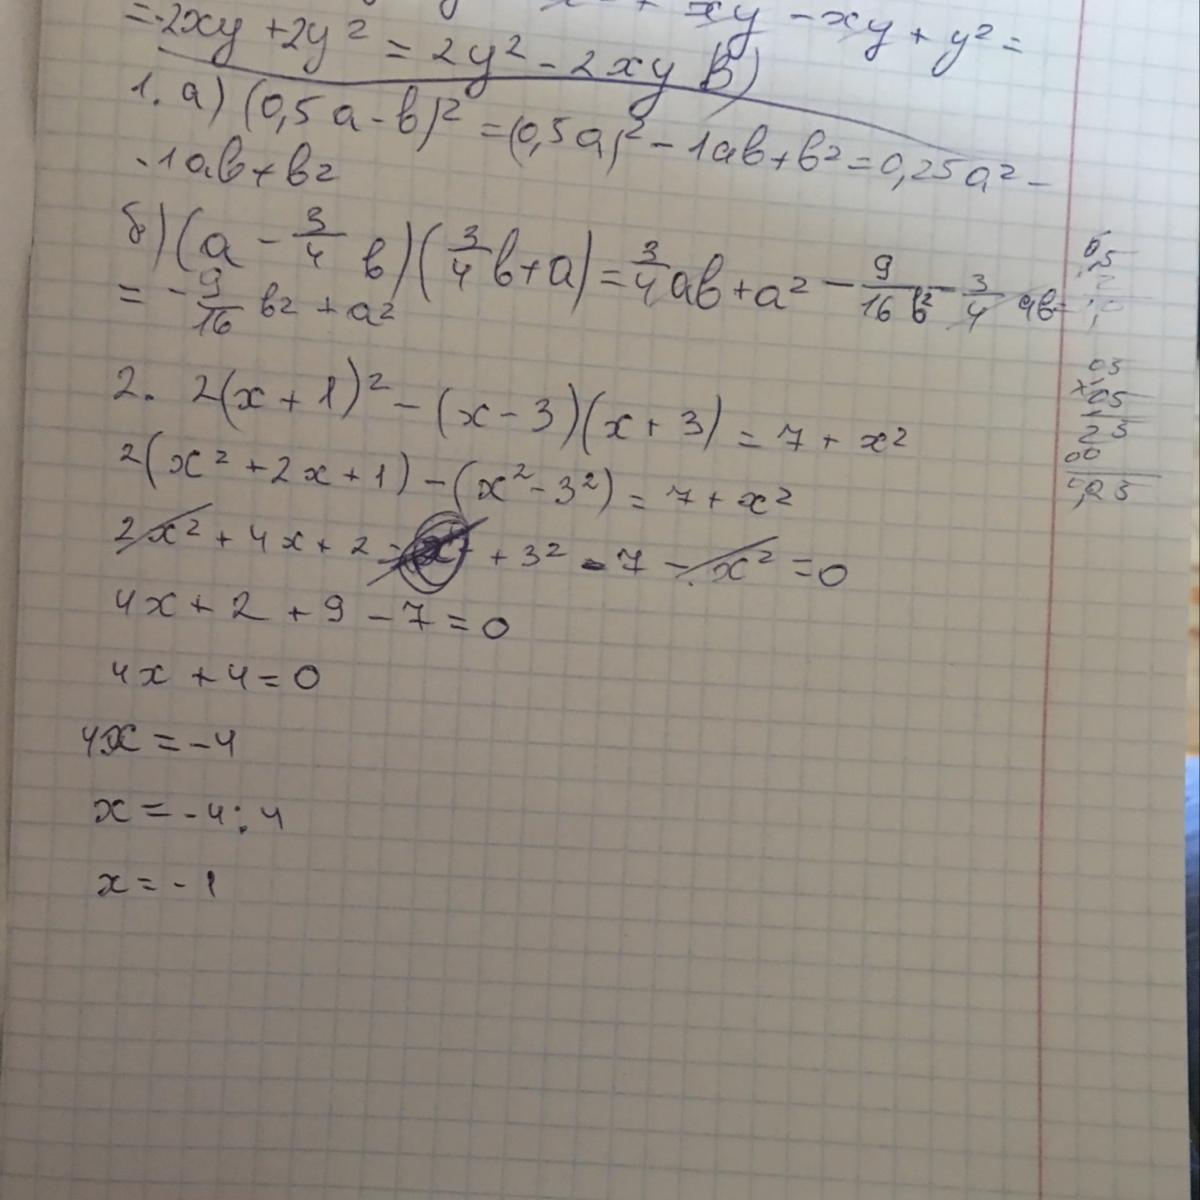 + xy - xy + y² =
= -2xy + 2y² = 2y² - 2xy в)
1. а) (0,5a - b)² = (0,5a)² - 1ab + b² = 0,25a² -
-1ab + b²
б) (a - 3/4 b)(3/4 b + a) = 3/4 ab + a² - 9/16 b² - 3/4 ab =
= - 9/16 b² + a²
2. 2(x + 1)² - (x - 3)(x + 3) = 7 + x²
2(x² + 2x + 1) - (x² - 3²) = 7 + x²
2x² + 4x + 2 - x² + 3² - 7 - x² = 0
4x + 2 + 9 - 7 = 0
4x + 4 = 0
4x = -4
x = -4 : 4
x = -1
05
×05
25
00
0,25